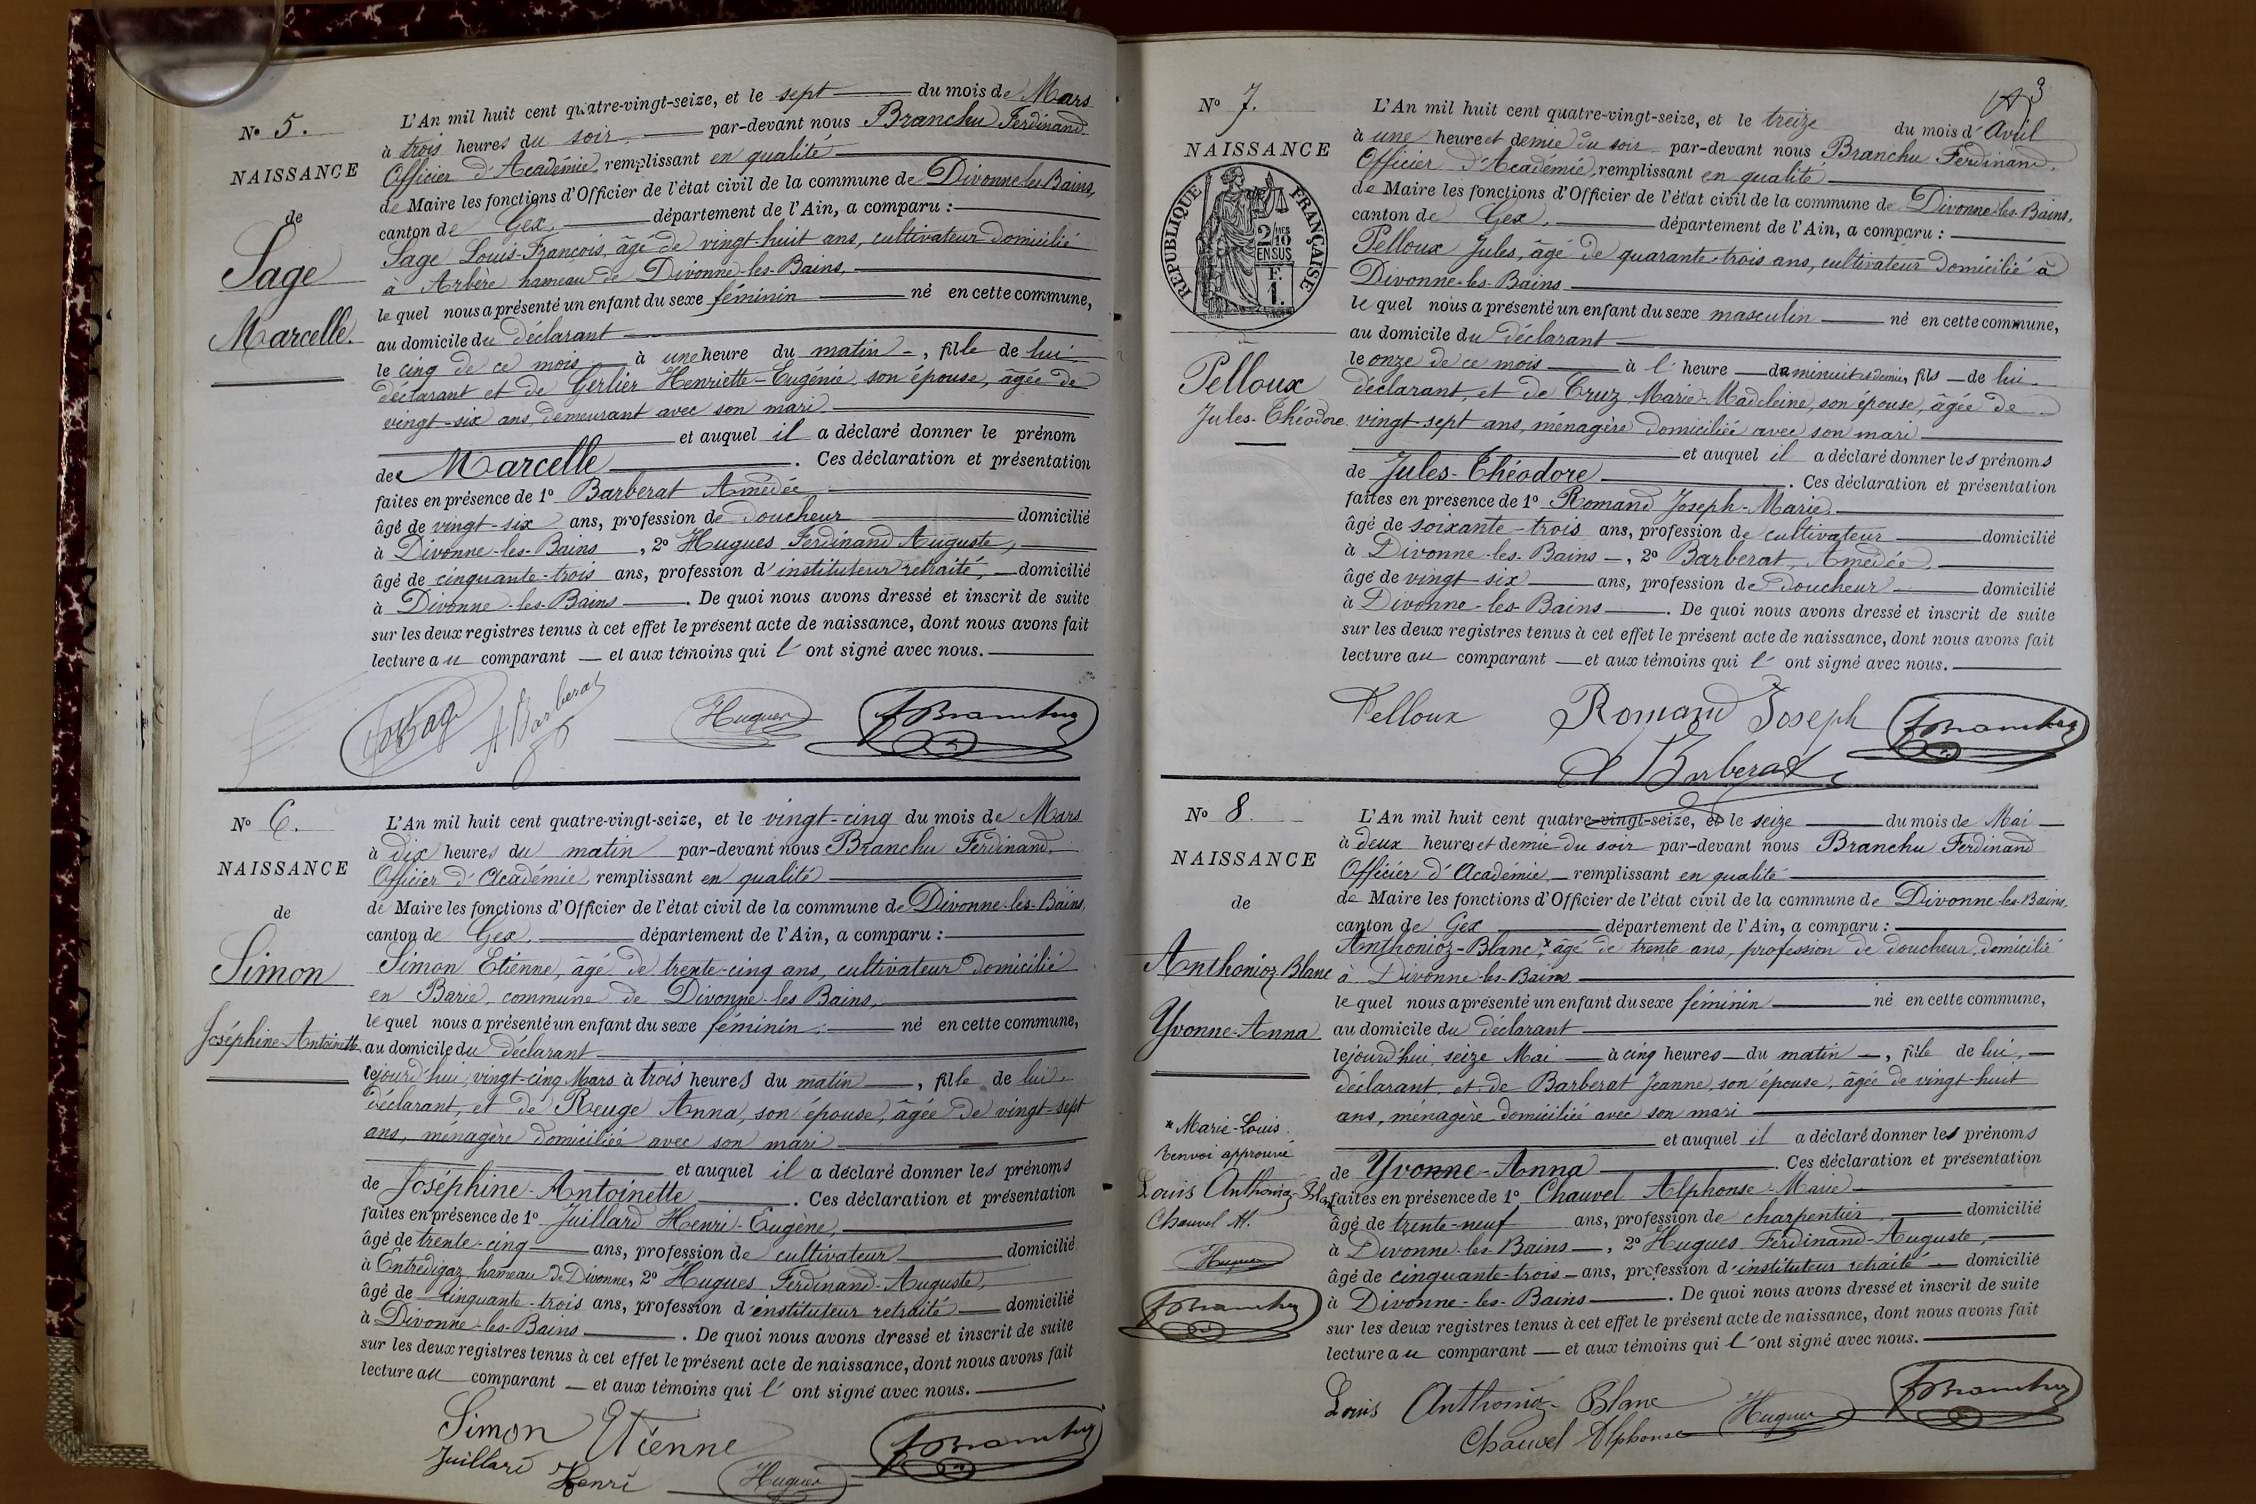 N° 5.
NAISSANCE
de
Sage
Marcelle.
L'An mil huit cent quatre-vingt-seize, et le sept du mois de Mars
à trois heures du soir par-devant nous Branchu Ferdinand
Officier d'Académie, remplissant en qualité
de Maire les fonctions d'Officier de l'état civil de la commune de Divonne-les-Bains,
canton de Gex, département de l'Ain, a comparu :
Sage Louis-François, âgé de vingt-huit ans, cultivateur domicilié
à Arbère hameau de Divonne-les-Bains,
le quel nous a présenté un enfant du sexe féminin né en cette commune,
au domicile du déclarant
le cinq de ce mois à une heure du matin, fille de lui
déclarant et de Gerlier Henriette-Eugénie son épouse, âgée de
vingt-six ans demeurant avec son mari
et auquel il a déclaré donner le prénom
de Marcelle. Ces déclaration et présentation
faites en présence de 1° Barberat Amédée
âgé de vingt-six ans, profession de doucheur domicilié
à Divonne-les-Bains, 2° Hugues Ferdinand Auguste,
âgé de cinquante-trois ans, profession d'instituteur retraité, domicilié
à Divonne-les-Bains. De quoi nous avons dressé et inscrit de suite
sur les deux registres tenus à cet effet le présent acte de naissance, dont nous avons fait
lecture au comparant et aux témoins qui l' ont signé avec nous.
A Barberat Hugues FBranchu
N° 6.
NAISSANCE
de
Simon
Joséphine-Antoinette
L'An mil huit cent quatre-vingt-seize, et le vingt-cinq du mois de Mars
à dix heures du matin par-devant nous Branchu Ferdinand.
Officier d'Académie, remplissant en qualité
de Maire les fonctions d'Officier de l'état civil de la commune de Divonne-les-Bains,
canton de Gex, département de l'Ain, a comparu :
Simon Etienne, âgé de trente-cinq ans, cultivateur domicilié
en Barie, commune de Divonne-les Bains,
le quel nous a présenté un enfant du sexe féminin né en cette commune,
au domicile du déclarant
lejourd'hui vingt-cinq Mars à trois heures du matin, fille de lui,
déclarant, et de Reuge Anna, son épouse, âgée de vingt-sept
ans, ménagère domiciliée avec son mari
et auquel il a déclaré donner les prénoms
de Joséphine-Antoinette. Ces déclaration et présentation
faites en présence de 1° Juillard Henri-Eugène,
âgé de trente-cinq ans, profession de cultivateur domicilié
à Entredigaz hameau de Divonne, 2° Hugues Ferdinand-Auguste,
âgé de cinquante-trois ans, profession d'instituteur retraité domicilié
à Divonne-les-Bains. De quoi nous avons dressé et inscrit de suite
sur les deux registres tenus à cet effet le présent acte de naissance, dont nous avons fait
lecture au comparant et aux témoins qui l' ont signé avec nous.
Simon Etienne FBranchu
Juillard Henri Hugues
3
N° 7.
NAISSANCE
RÉPUBLIQUE FRANÇAISE
2/10
EN SUS
F.
1.
Pelloux
Jules-Théodore
L'An mil huit cent quatre-vingt-seize, et le treize du mois d'Avril
à une heure et demie du soir par-devant nous Branchu Ferdinand.
Officier d'Académie, remplissant en qualité
de Maire les fonctions d'Officier de l'état civil de la commune de Divonne-les-Bains,
canton de Gex, département de l'Ain, a comparu :
Pelloux Jules, âgé de quarante-trois ans, cultivateur domicilié à
Divonne-les-Bains
le quel nous a présenté un enfant du sexe masculin né en cette commune,
au domicile du déclarant
le onze de ce mois à l' heure de minuit et demie, fils de lui
déclarant, et de Cruz Marie-Madeleine, son épouse, âgée de
vingt-sept ans, ménagère domiciliée avec son mari
et auquel il a déclaré donner les prénoms
de Jules-Théodore. Ces déclaration et présentation
faites en présence de 1° Romand Joseph-Marie
âgé de soixante-trois ans, profession de cultivateur domicilié
à Divonne-les-Bains, 2° Barberat, Amédée
âgé de vingt-six ans, profession de doucheur domicilié
à Divonne-les-Bains. De quoi nous avons dressé et inscrit de suite
sur les deux registres tenus à cet effet le présent acte de naissance, dont nous avons fait
lecture au comparant et aux témoins qui l' ont signé avec nous.
Pelloux Romand Joseph FBranchu
A Barberat
N° 8.
NAISSANCE
de
Anthonioz-Blanc
Yvonne-Anna
* Marie-Louis.
Renvoi approuvé
Louis Anthonioz-Blanc
Chauvel A.
Hugues
FBranchu
L'An mil huit cent quatre-vingt-seize, et le seize du mois de Mai
à deux heures et demie du soir par-devant nous Branchu Ferdinand
Officier d'Académie remplissant en qualité
de Maire les fonctions d'Officier de l'état civil de la commune de Divonne-les-Bains,
canton de Gex département de l'Ain, a comparu :
Anthonioz-Blanc,* âgé de trente ans, profession de doucheur, domicilié
à Divonne-les-Bains
le quel nous a présenté un enfant du sexe féminin né en cette commune,
au domicile du déclarant
lejourd'hui seize Mai à cinq heures du matin, fille de lui,
déclarant et de Barberat Jeanne, son épouse, âgée de vingt-huit
ans, ménagère domiciliée avec son mari
et auquel il a déclaré donner les prénoms
de Yvonne-Anna. Ces déclaration et présentation
faites en présence de 1° Chauvel Alphonse-Marie
âgé de trente-neuf ans, profession de charpentier domicilié
à Divonne-les-Bains, 2° Hugues Ferdinand-Auguste,
âgé de cinquante-trois ans, profession d'instituteur retraité domicilié
à Divonne-les-Bains. De quoi nous avons dressé et inscrit de suite
sur les deux registres tenus à cet effet le présent acte de naissance, dont nous avons fait
lecture au comparant et aux témoins qui l' ont signé avec nous.
Louis Anthonioz-Blanc Hugues FBranchu
Chauvel Alphonse